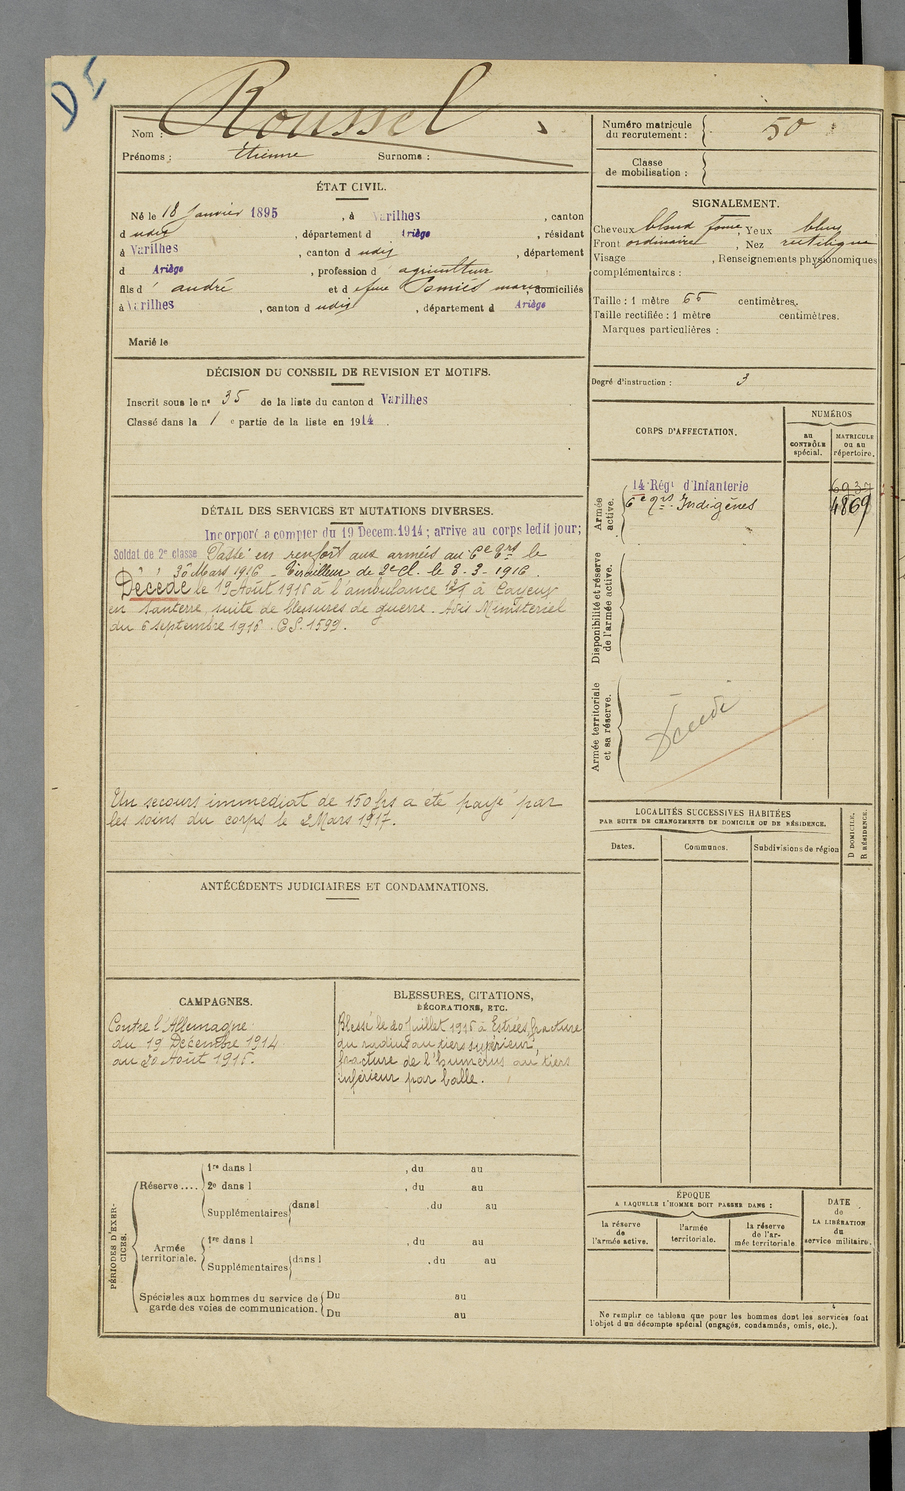 DI
Nom : Roussel
Prénoms : Etienne Surnoms :
ÉTAT CIVIL.
Né le 18 Janvier 1895 , à Varilhes , canton
d udit , département d Ariège , résidant
à Varilhes , canton d udit , département
d Ariège , profession d agriculteur
fils d andré et d efeue Pomiès marie , domiciliés
à Varilhes , canton d udit , département d Ariège
Marié le
DÉCISION DU CONSEIL DE REVISION ET MOTIFS.
Inscrit sous le no 35 de la liste du canton d Varilhes
Classé dans la 1 e partie de la liste en 1914 .
DÉTAIL DES SERVICES ET MUTATIONS DIVERSES.
Incorporé a compter du 19 Decem. 1914 ; arrive au corps ledit jour;
Soldat de 2e classe Passé en renfort aux armées au 6e grs le
" " 30 Mars 1916 - Tirailleur de 2e Cl. le 3-3-1916.
Décédé le 19 Août 1916 à l'ambulance à Cayeux
en Santerre, suite de blessures de guerre. Avis Ministériel
du 6 septembre 1916. C.S. 1599.
Un secours immédiat de 150 frs a été payé par
les soins du corps le 2 Mars 1917.
ANTÉCÉDENTS JUDICIAIRES ET CONDAMNATIONS.
CAMPAGNES.
Contre l'Allemagne
du 19 Décembre 1914
au 20 Août 1916.
BLESSURES, CITATIONS,
DÉCORATIONS, ETC.
Blessé le 20 Juillet 1916 à Estrées, fracture
du radius au tiers supérieur,
fracture de l'humérus au tiers
inférieur par balle.
PÉRIODES D'EXER-
CICES.
Réserve ....
1re dans l , du au
2e dans l , du au
Supplémentaires dans l , du au
Armée
territoriale.
1re dans l , du au
Supplémentaires dans l , du au
Spéciales aux hommes du service de
garde des voies de communication.
Du au
Du au
Numéro matricule
du recrutement : 50
Classe
de mobilisation :
SIGNALEMENT.
Cheveux blond foncé , Yeux bleus
Front ordinaire , Nez rectiligne
Visage , Renseignements physionomiques
complémentaires :
Taille : 1 mètre 66 centimètres.
Taille rectifiée : 1 mètre centimètres.
Marques particulières :
Degré d'instruction : 3
CORPS D'AFFECTATION.
NUMÉROS
au
CONTRÔLE
spécial.
MATRICULE
ou au
répertoire.
Armée
active.
14 Régt d'Infanterie 6937
6e grs Indigènes 4869
Disponibilité et réserve
de l'armée active.
Armée territoriale
et sa réserve.
Décédé
LOCALITÉS SUCCESSIVES HABITÉES
PAR SUITE DE CHANGEMENTS DE DOMICILE OU DE RÉSIDENCE.
Dates. Communes. Subdivisions de région
D DOMICILE.
R RÉSIDENCE.
ÉPOQUE
A LAQUELLE L'HOMME DOIT PASSER DANS :
la réserve
de
l'armée active.
l'armée
territoriale.
la réserve
de l'ar-
mée territoriale
DATE
de
LA LIBÉRATION
du
service militaire.
Ne remplir ce tableau que pour les hommes dont les services font
l'objet d'un décompte spécial (engagés, condamnés, omis, etc.).